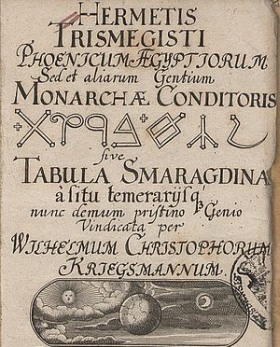 HERMETIS
TRISMEGISTI
PHOENICUM ÆGYPTIORUM
Sed et aliarum Gentium
MONARCHÆ CONDITORIS
sive
TABULA SMARAGDINA
à situ temerarijsq́
nunc demum pristino Genio
Vindicata per
WILHELMUM CHRISTOPHORUM
KRIEGSMANNUM.